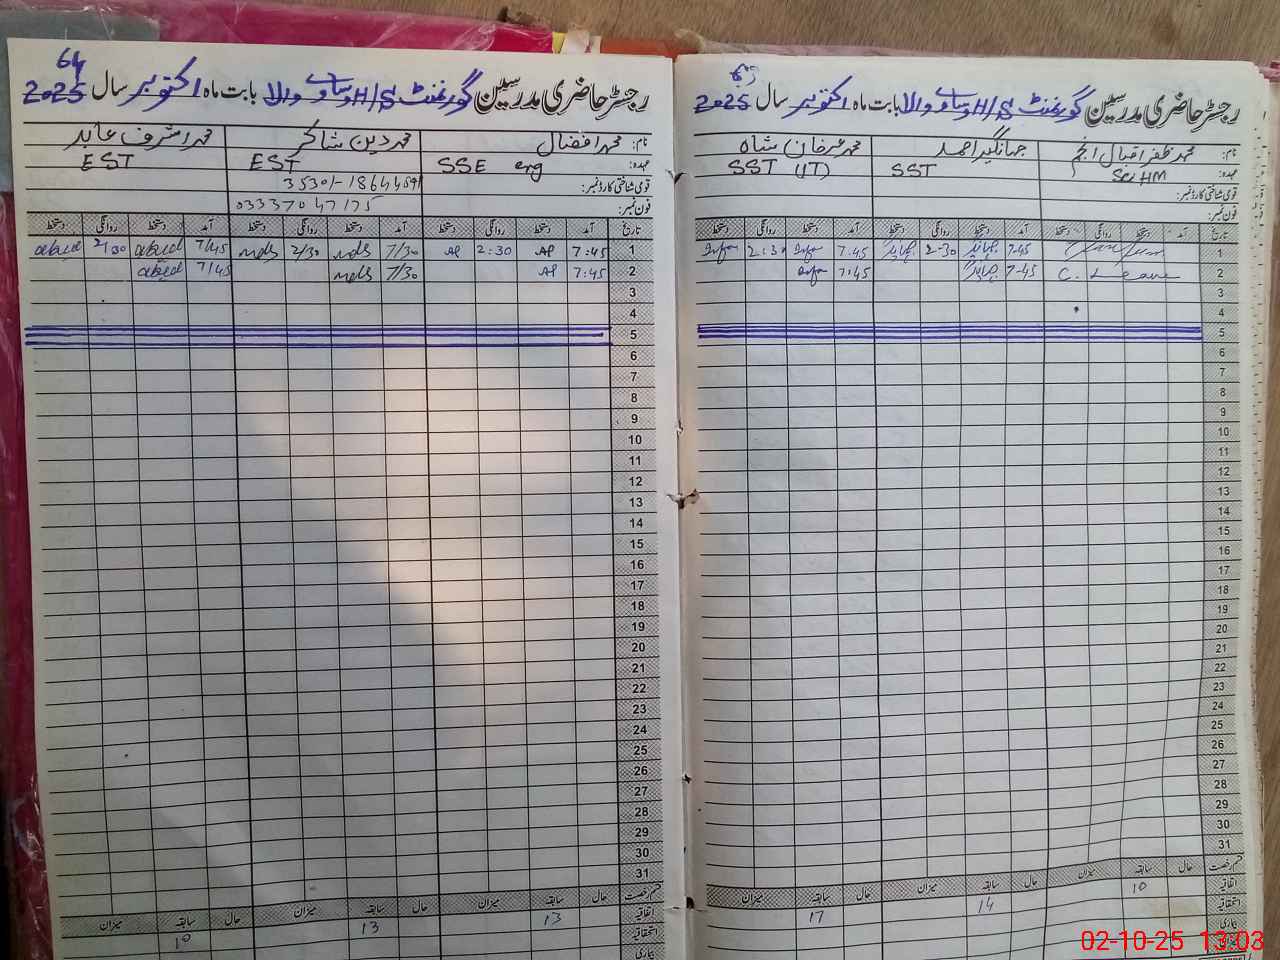 رجسٹر حاضری مدرسین گورنمنٹ H/S وساوے والا بابت ماہ اکتوبر سال 2025
نام: محمد ظفر اقبال انجم جہانگیر احمد محمد عرفان شاہ
عہدہ: Sr/HM SST SST (IT)
قومی شناختی کارڈ نمبر:
فون نمبر:
تاریخ آمد دستخط روانگی دستخط آمد دستخط روانگی دستخط آمد دستخط روانگی دستخط
1 7-45 2-30 7:45 Irfan 2:30 Irfan
2 C. Leave 7-45 7:45 Irfan
3
4
5
6
7
8
9
10
11
12
13
14
15
16
17
18
19
20
21
22
23
24
25
26
27
28
29
30
31
قسم رخصت حال سابقہ میزان حال سابقہ میزان حال سابقہ میزان
اتفاقیہ 10 14 17
استحقاقیہ
بیماری
64
رجسٹر حاضری مدرسین گورنمنٹ H/S وساوے والا بابت ماہ اکتوبر سال 2025
نام: محمد افضال محمد دین شاکر محمد اشرف عابد
عہدہ: SSE eng EST EST
قومی شناختی کارڈ نمبر:
فون نمبر: 03337047175
تاریخ آمد دستخط روانگی دستخط آمد دستخط روانگی دستخط آمد دستخط روانگی دستخط
1 7:45 AP 2:30 AP 7/30 mds 2/30 mds 7/45 abid 2/30 abid
2 7:45 AP 7/30 mds 7/45 abid
3
4
5
6
7
8
9
10
11
12
13
14
15
16
17
18
19
20
21
22
23
24
25
26
27
28
29
30
31
قسم رخصت حال سابقہ میزان حال سابقہ میزان حال سابقہ میزان
اتفاقیہ 13 13 10
استحقاقیہ
بیماری
02-10-25 13:03